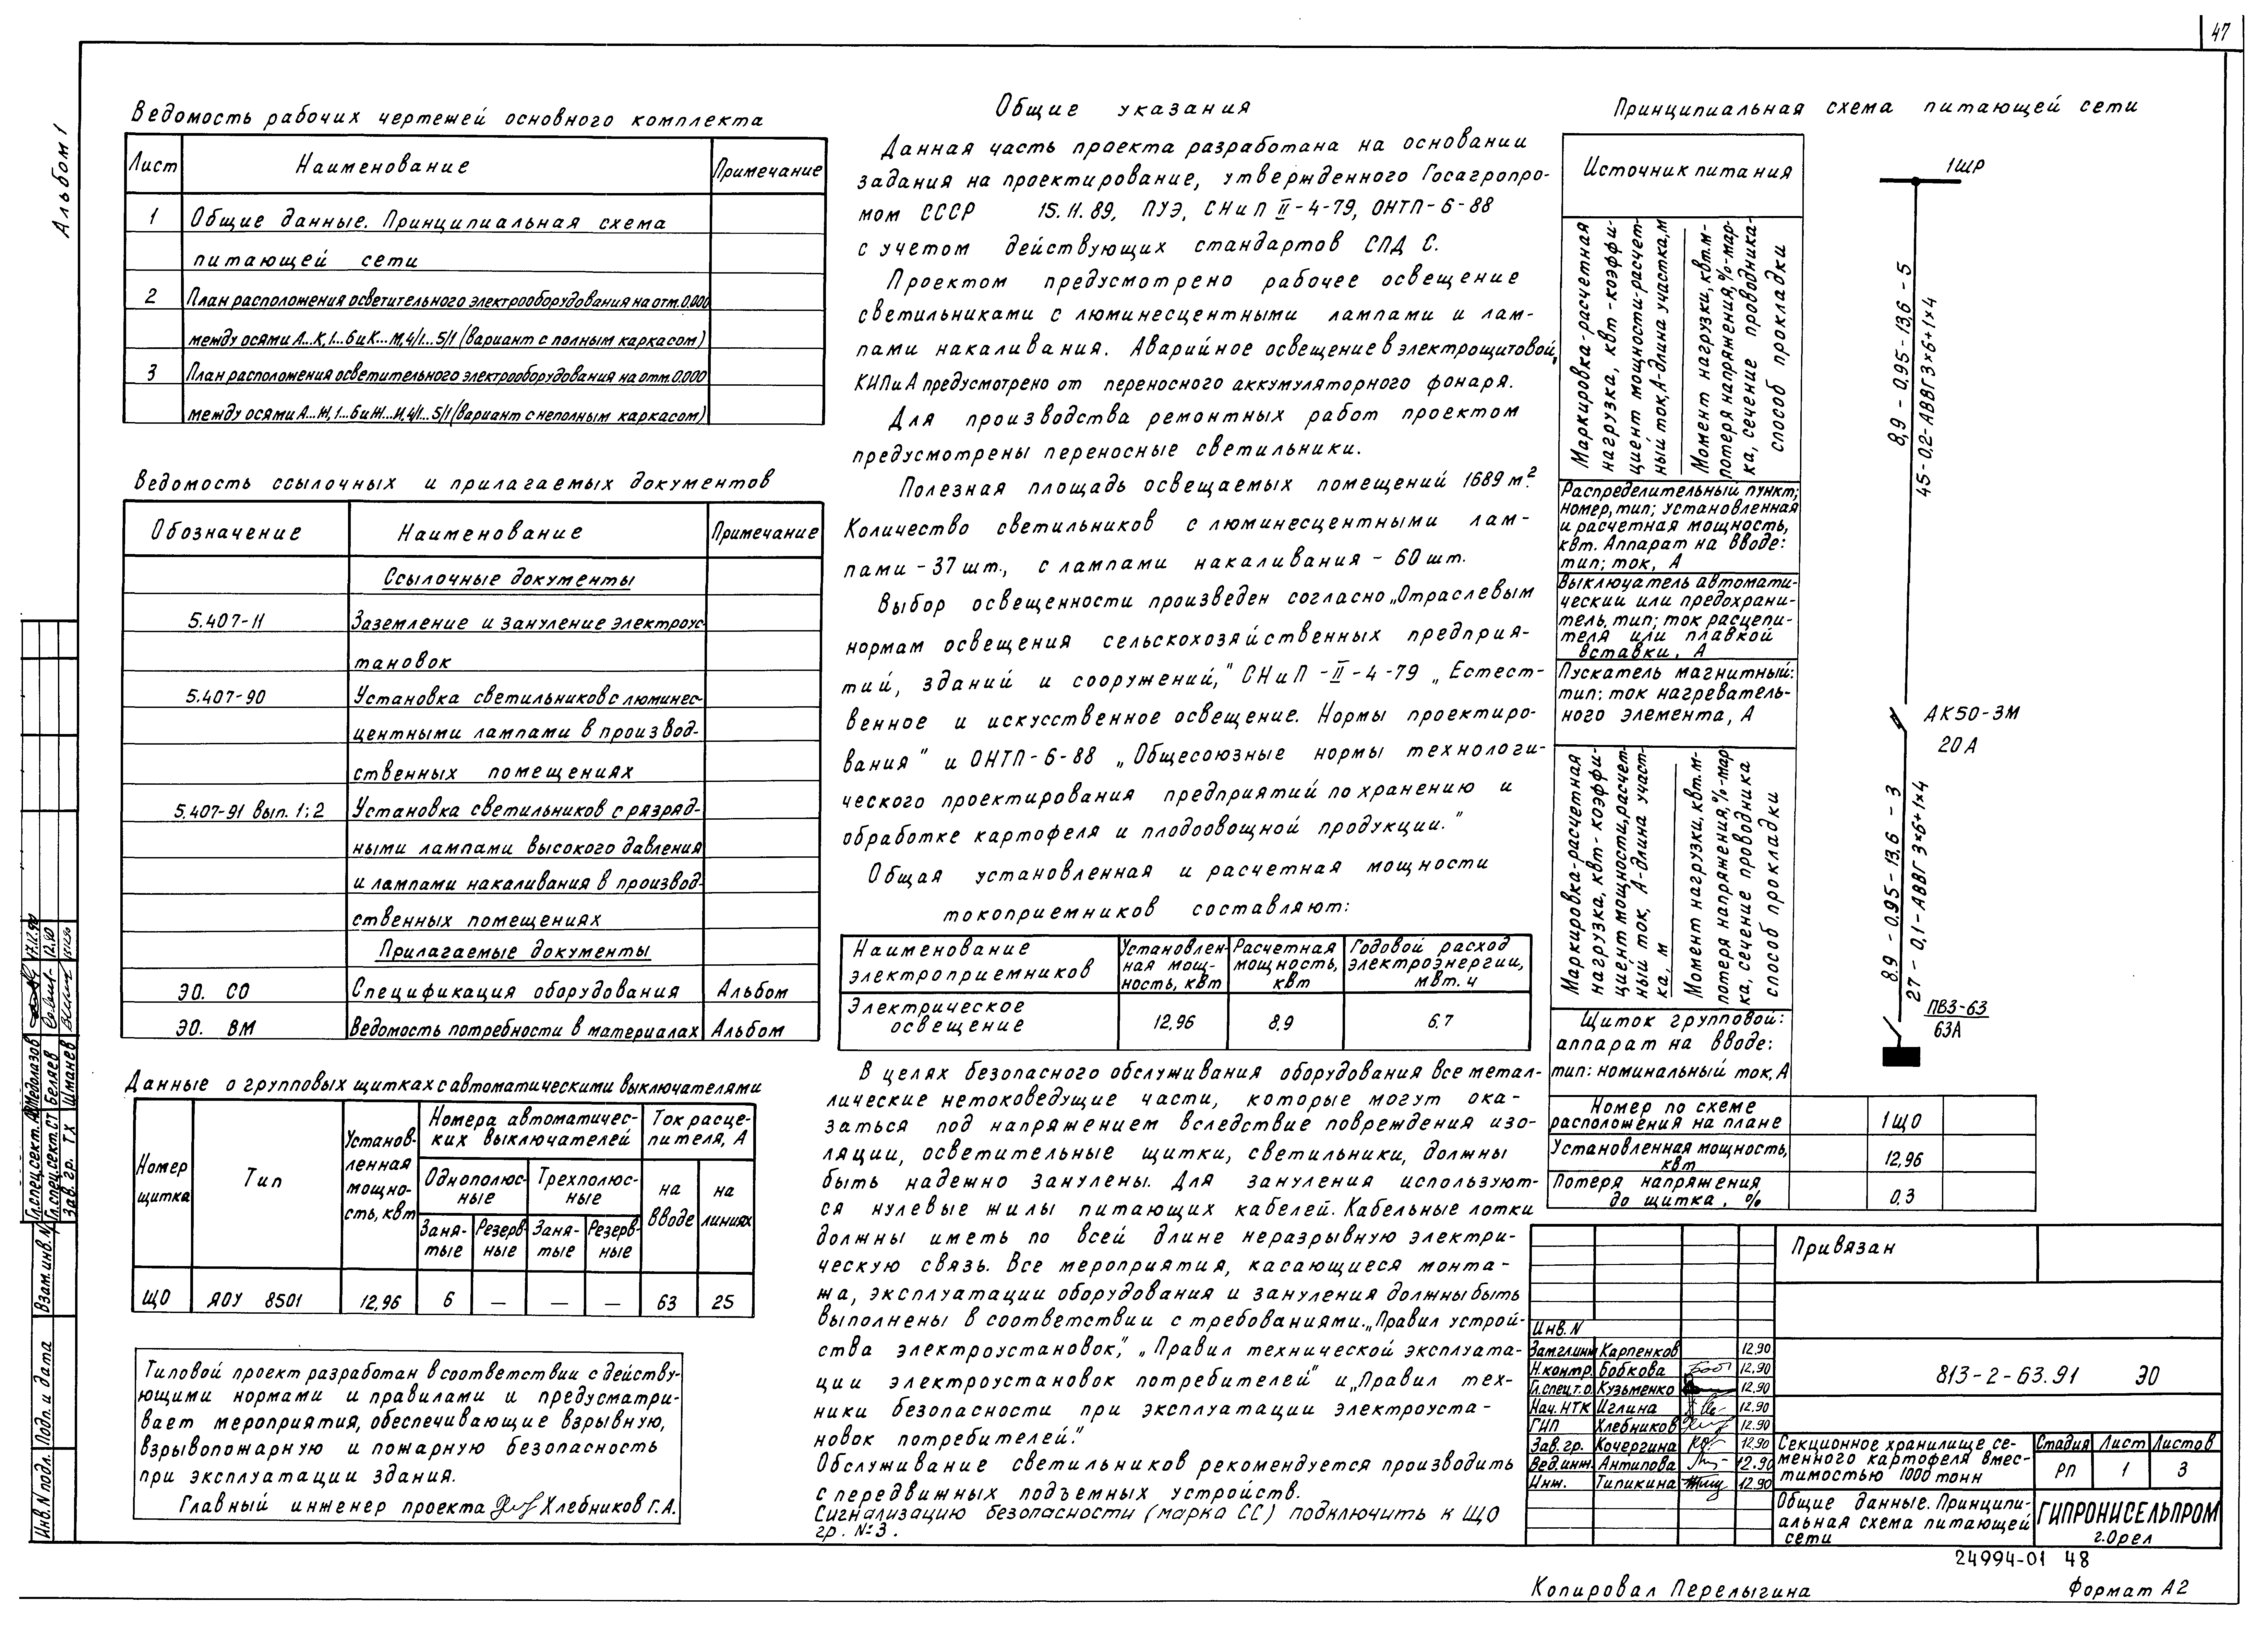 47
Альбом 1
Ведомость рабочих чертежей основного комплекта
Лист Наименование Примечание
1 Общие данные. Принципиальная схема
питающей сети
2 План расположения осветительного электрооборудования на отм.0.000
между осями А...К,1...6 и К...М,4/1...5/1 (вариант с полным каркасом)
3 План расположения осветительного электрооборудования на отм.0.000
между осями А...Ж,1...6 и Ж...И,4/1...5/1 (вариант с неполным каркасом)
Ведомость ссылочных и прилагаемых документов
Обозначение Наименование Примечание
Ссылочные документы
5.407-11 Заземление и зануление электроус-
тановок
5.407-90 Установка светильников с люминес-
центными лампами в производ-
ственных помещениях
5.407-91 вып. 1;2 Установка светильников с разряд-
ными лампами высокого давления
и лампами накаливания в производ-
ственных помещениях
Прилагаемые документы
ЭО. СО Спецификация оборудования Альбом
ЭО. ВМ Ведомость потребности в материалах Альбом
Данные о групповых щитках с автоматическими выключателями
Номер щитка
Тип
Установ-
ленная
мощно-
сть, квт
Номера автоматичес-
ких выключателей
Ток расце-
пителя, А
Однополюс-
ные
Трехполюс-
ные
на
вводе
на
линиях
Заня-
тые
Резерв-
ные
Заня-
тые
Резерв-
ные
ЩО ЯОУ 8501 12,96 6 — — — 63 25
Типовой проект разработан в соответствии с действу-
ющими нормами и правилами и предусматри-
вает мероприятия, обеспечивающие взрывную,
взрывопожарную и пожарную безопасность
при эксплуатации здания.
Главный инженер проекта Хлебников Г.А.
Общие указания
Данная часть проекта разработана на основании
задания на проектирование, утвержденного Госагропро-
мом СССР 15.11.89, ПУЭ, СНиП II-4-79, ОНТП-6-88
с учетом действующих стандартов СПД С.
Проектом предусмотрено рабочее освещение
светильниками с люминесцентными лампами и лам-
пами накаливания. Аварийное освещение в электрощитовой,
КИПиА предусмотрено от переносного аккумуляторного фонаря.
Для производства ремонтных работ проектом
предусмотрены переносные светильники.
Полезная площадь освещаемых помещений 1689 м².
Количество светильников с люминесцентными лам-
пами - 37 шт., с лампами накаливания - 60 шт.
Выбор освещенности произведен согласно „Отраслевым
нормам освещения сельскохозяйственных предприя-
тий, зданий и сооружений," СНиП-II-4-79 „Естест-
венное и искусственное освещение. Нормы проектиро-
вания" и ОНТП-6-88 „Общесоюзные нормы технологи-
ческого проектирования предприятий по хранению и
обработке картофеля и плодоовощной продукции."
Общая установленная и расчетная мощности
токоприемников составляют:
Наименование
электроприемников
Установлен-
ная мощ-
ность, квт
Расчетная
мощность,
квт
Годовой расход
электроэнергии,
мвт. ч
Электрическое
освещение
12,96 8,9 6,7
В целях безопасного обслуживания оборудования все метал-
лические нетоковедущие части, которые могут ока-
заться под напряжением вследствие повреждения изо-
ляции, осветительные щитки, светильники, должны
быть надежно занулены. Для зануления используют-
ся нулевые жилы питающих кабелей. Кабельные лотки
должны иметь по всей длине неразрывную электри-
ческую связь. Все мероприятия, касающиеся монта-
жа, эксплуатации оборудования и зануления должны быть
выполнены в соответствии с требованиями „Правил устрой-
ства электроустановок", „Правил технической эксплуата-
ции электроустановок потребителей" и „Правил тех-
ники безопасности при эксплуатации электроуста-
новок потребителей."
Обслуживание светильников рекомендуется производить
с передвижных подъемных устройств.
Сигнализацию безопасности (марка СС) подключить к ЩО
гр. №3.
Принципиальная схема питающей сети
Источник питания
Маркировка-расчетная
нагрузка, квт-коэффи-
циент мощности-расчет-
ный ток, А-длина участка, м
Момент нагрузки, квт.м-
потеря напряжения, %-мар-
ка, сечение проводника-
способ прокладки
Распределительный пункт;
номер, тип; установленная
и расчетная мощность,
квт. Аппарат на вводе:
тип; ток, А
Выключатель автомати-
ческий или предохрани-
тель, тип; ток расцепи-
теля или плавкой
вставки, А
Пускатель магнитный:
тип: ток нагреватель-
ного элемента, А
Маркировка-расчетная
нагрузка, квт-коэффи-
циент мощности, расчет-
ный ток, А-длина участ-
ка, м
Момент нагрузки, квт.м-
потеря напряжения, %-мар-
ка, сечение проводника
способ прокладки
Щиток групповой:
аппарат на вводе:
тип: номинальный ток, А
Номер по схеме
расположения на плане 1ЩО
Установленная мощность,
квт 12,96
Потеря напряжения
до щитка, % 0,3
1ШР
8,9 - 0,95 - 13,6 - 5
45-0,2-АВВГ 3×6+1×4
АК50-3М
20А
8,9 - 0,95 - 13,6 - 3
27-0,1-АВВГ 3×6+1×4
ПВ3-63
63А
Привязан
Инв. N
Зам.гл.инж Карпенков 12.90
Н.контр. Бобкова 12.90
Гл.спец.т.о. Кузьменко 12.90
Нач. НТК Иглина 12.90
ГИП Хлебников 12.90
Зав. гр. Кочергина 12.90
Вед.инж. Антипова 12.90
Инж. Типикина 12.90
813-2-63.91 ЭО
Секционное хранилище се-
менного картофеля вмес-
тимостью 1000 тонн
Стадия Лист Листов
РП 1 3
Общие данные. Принципи-
альная схема питающей
сети
ГИПРОНИСЕЛЬПРОМ
г.Орел
24994-01 48
Копировал Перелыгина
Формат А2
Гл.спец.сект. Медолазов
Гл.спец.сект. СТ Беляев 12.90
Зав. гр. ТХ Шманев
Взам.инв.N
Подп. и дата
Инв.N подл.